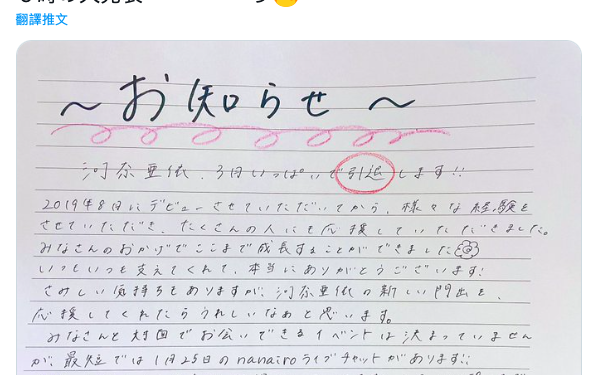 翻譯推文
～お知らせ～
河奈亜依、3月いっぱいで引退します!!
2019年8月にデビューさせていただいてから、様々な経験を
させていただき、たくさんの人にも応援していただきました。
みなさんのおかげでここまで成長することができました
いつもいつも支えてくれて、本当にありがとうございます!
さみしい気持ちもありますが、河奈亜依の新しい門出を、
応援してくれたらうれしいなぁと思います。
みなさんと対面でお会いできるイベントは決まっていません
が、最短では1月25日のnanairoライブチャットがあります!!